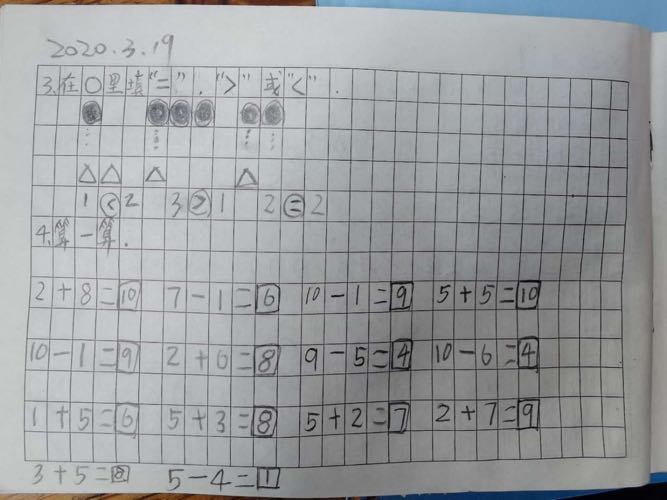 2020.3.19
3.在○里填"="."＞"或"＜".
1＜2 3＞1 2=2
4.算一算.
2+8=10 7-1=6 10-1=9 5+5=10
10-1=9 2+6=8 9-5=4 10-6=4
1+5=6 5+3=8 5+2=7 2+7=9
3+5=8 5-4=1